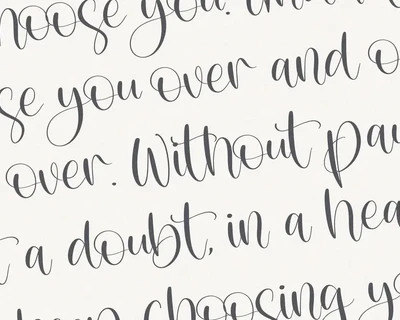 choose you. 
se you over and o
over. Without pau
t a doubt, in a hea
keep choosing yo